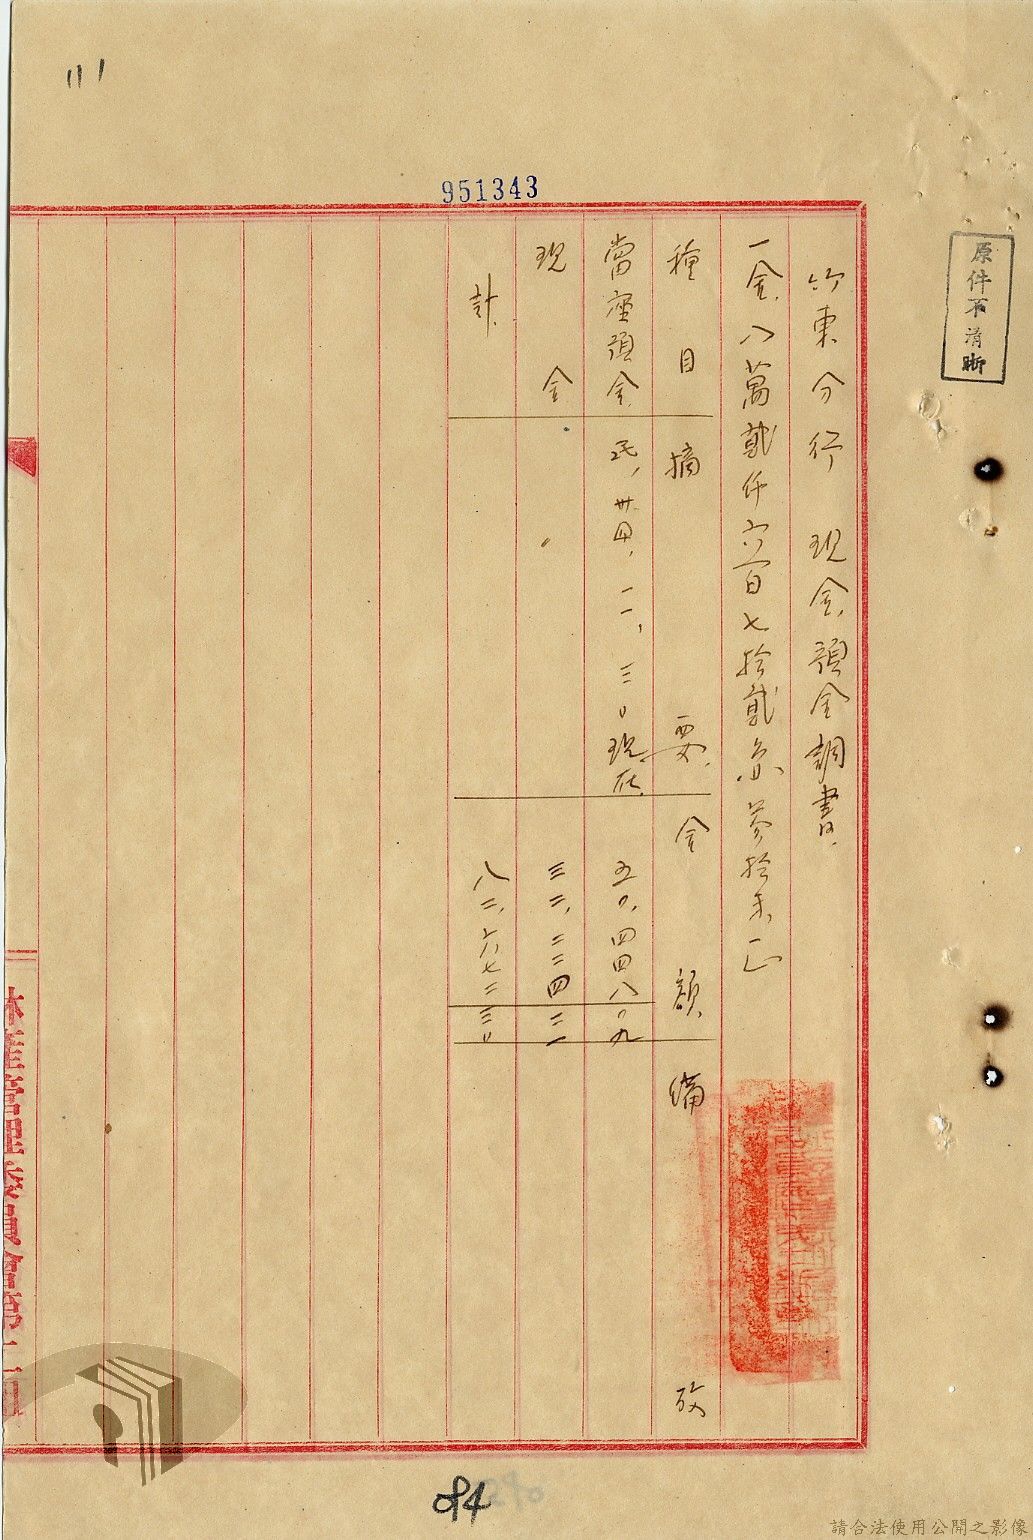 111
951343
原件不清晰
竹東分行 現金預金調書
一金八萬貳仟六百七拾貳円參拾钱正
種目 摘要 金額 備攷
當座預金 民、卅四、一一、三〇現在 五〇、四四八〇九
現金 三二、二二四二一
計 八二、六七二三〇
林產管理委員會第
84
請合法使用公開之影像